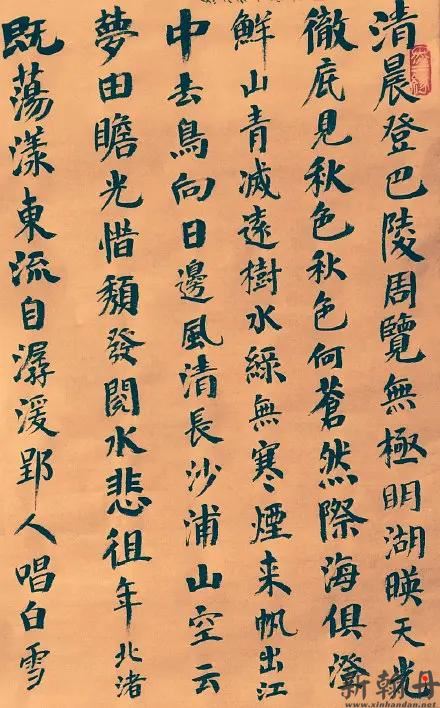 清晨登巴陵周覽無極明湖暎天光
徹底見秋色秋色何蒼然際海俱澄
鮮山青滅遠樹水綠無寒煙来帆出江
中去鳥向日邊風清長沙浦山空云
夢田瞻光惜頹發閱水悲徂年北渚
既蕩漾東流自潺湲郢人唱白雪
www.xinhandan.net